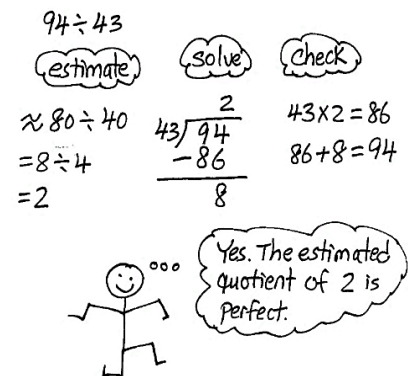 94÷43
estimate
≈ 80÷40
=8÷4
=2
solve
2
43)94
-86
8
check
43×2=86
86+8=94
Yes. The estimated
quotient of 2 is
perfect.